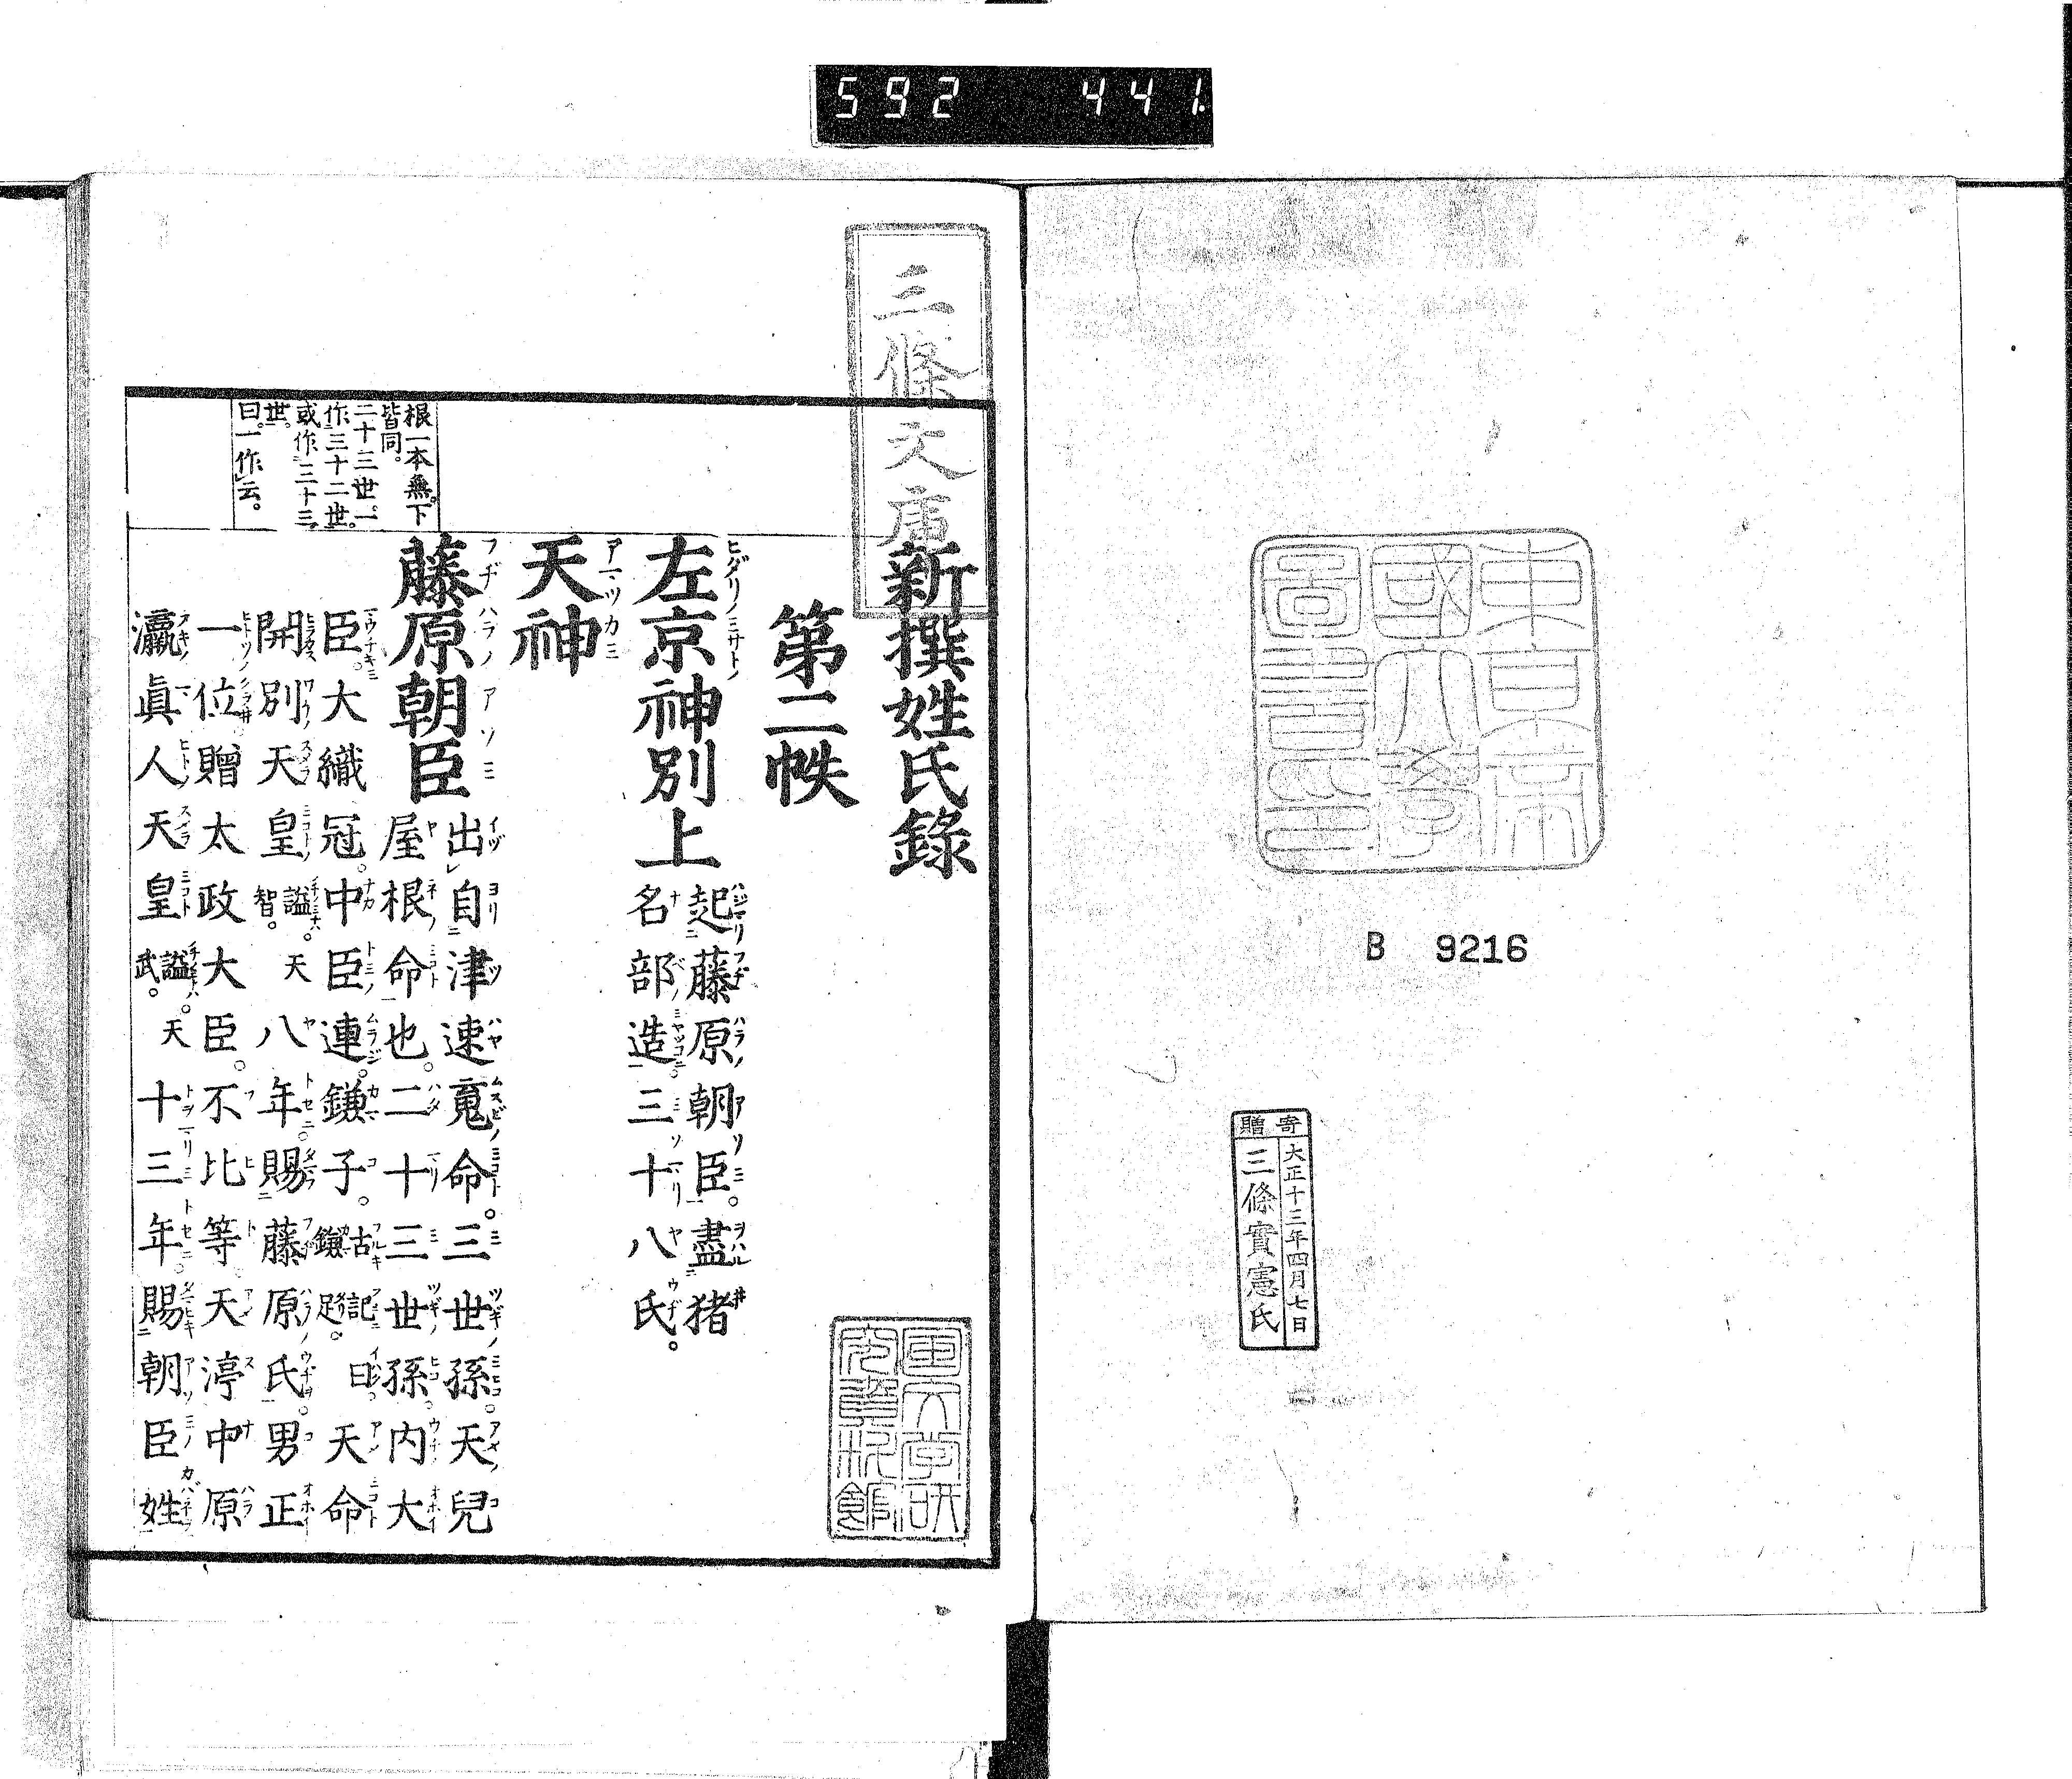 592 441
東京帝國大學圖書印
B 9216
寄贈
大正十三年四月七日
三條實憲氏
三條文庫
新撰姓氏錄
第二帙
左京神別上
起藤原朝臣。盡猪
名部造三十八氏。
天神
藤原朝臣
出自津速䰟命。三世孫。天兒
屋根命也。二十三世孫。内大
臣。大織冠。中臣連。鎌子。古記曰。天命
鎌足。
開別天皇謚。天智。八年。賜藤原氏。男正
一位贈太政大臣。不比等。天渟中原
瀛眞人天皇謚。天武。十三年。賜朝臣姓
根一本無。下
皆同。
二十三世。一
作三十二世。
或作三十三
世。
曰。一作云。